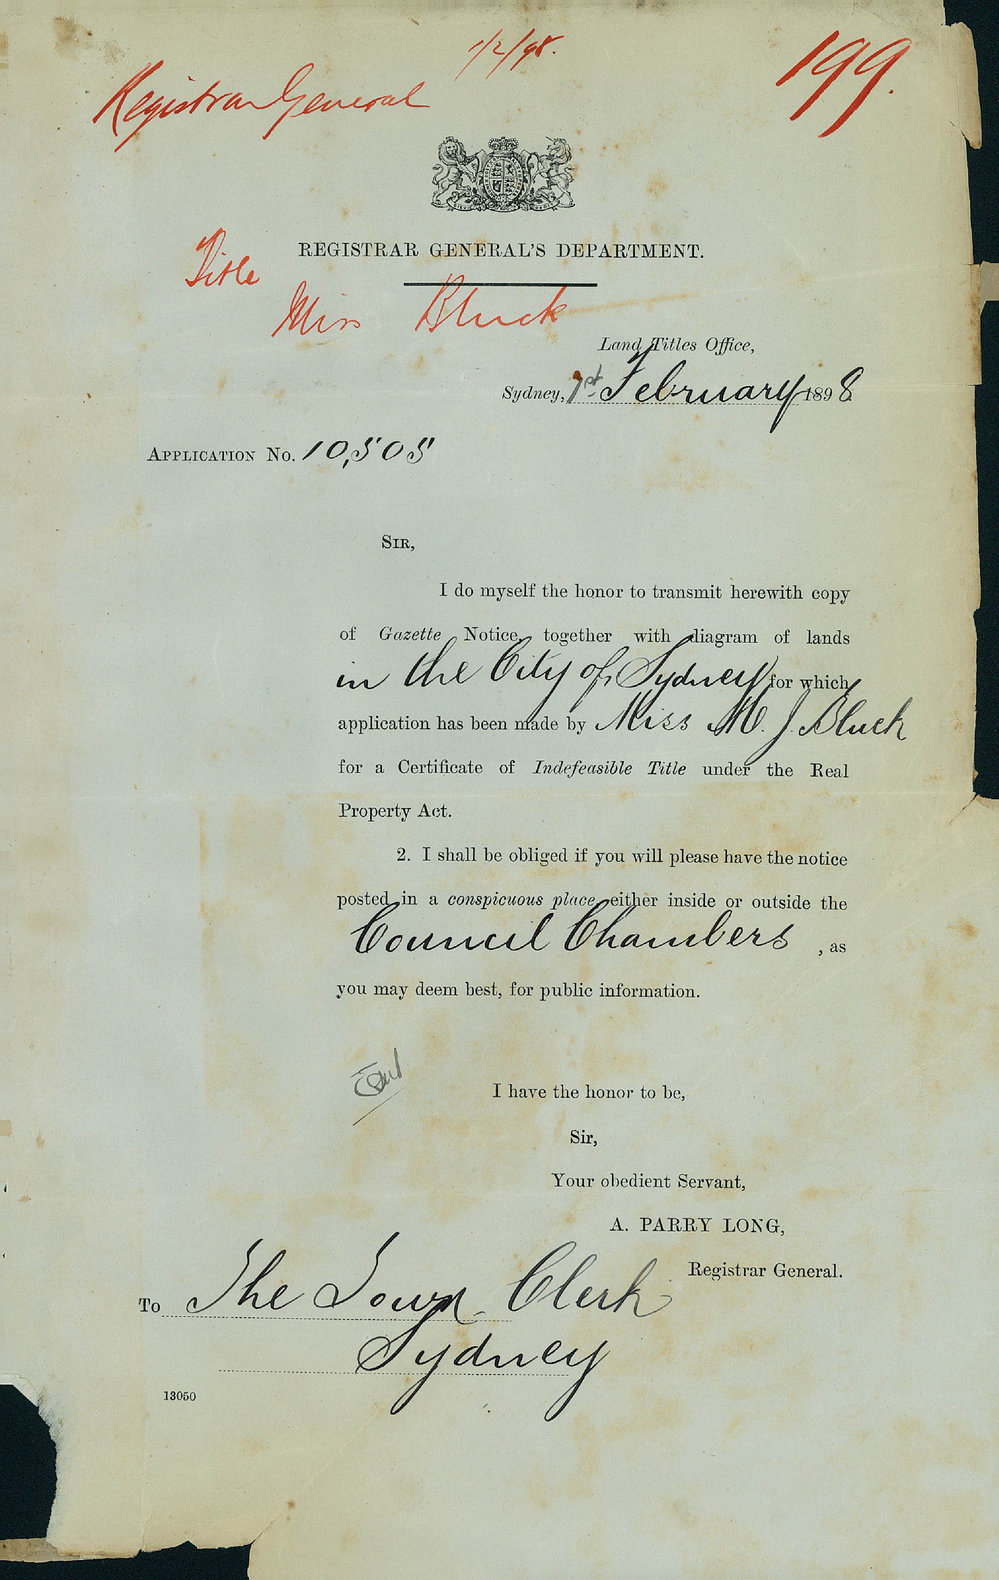 1/2/98.
199.
Registrar General
REGISTRAR GENERAL'S DEPARTMENT.
Title
Miss Bluck
Land Titles Office,
Sydney, 1st February 1898
APPLICATION No. 10,505
SIR,
I do myself the honor to transmit herewith copy
of Gazette Notice, together with diagram of lands
in the City of Sydney for which
application has been made by Miss M. J. Bluck
for a Certificate of Indefeasible Title under the Real
Property Act.
2. I shall be obliged if you will please have the notice
posted in a conspicuous place, either inside or outside the
Council Chambers, as
you may deem best, for public information.
I have the honor to be,
Sir,
Your obedient Servant,
A. PARRY LONG,
Registrar General.
To The Town Clerk
Sydney
13050